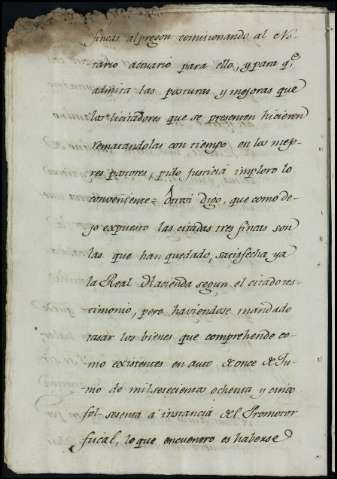 fincas al pregon comisionando al No-
tario actuario para ello, y para q.e
admita las posturas, y mejoras que
los licitadores que se presenten hicieren
rematandolas con tiempo en los mejo-
res pastores, pido justicia imploro lo
conveniente = Otrosi digo, que como de-
jo expuesto las citadas tres fincas son
las que han quedado, satisfecha ya
la Real Hacienda segun el citado tes-
timonio, pero haviendose mandado
tasar los bienes que comprehende co-
mo existentes en auto de once de Ju-
nio de mil setecientos ochenta y cinco
fol. sesenta á instancia del Promotor
fiscal, lo que encuentro es haberse